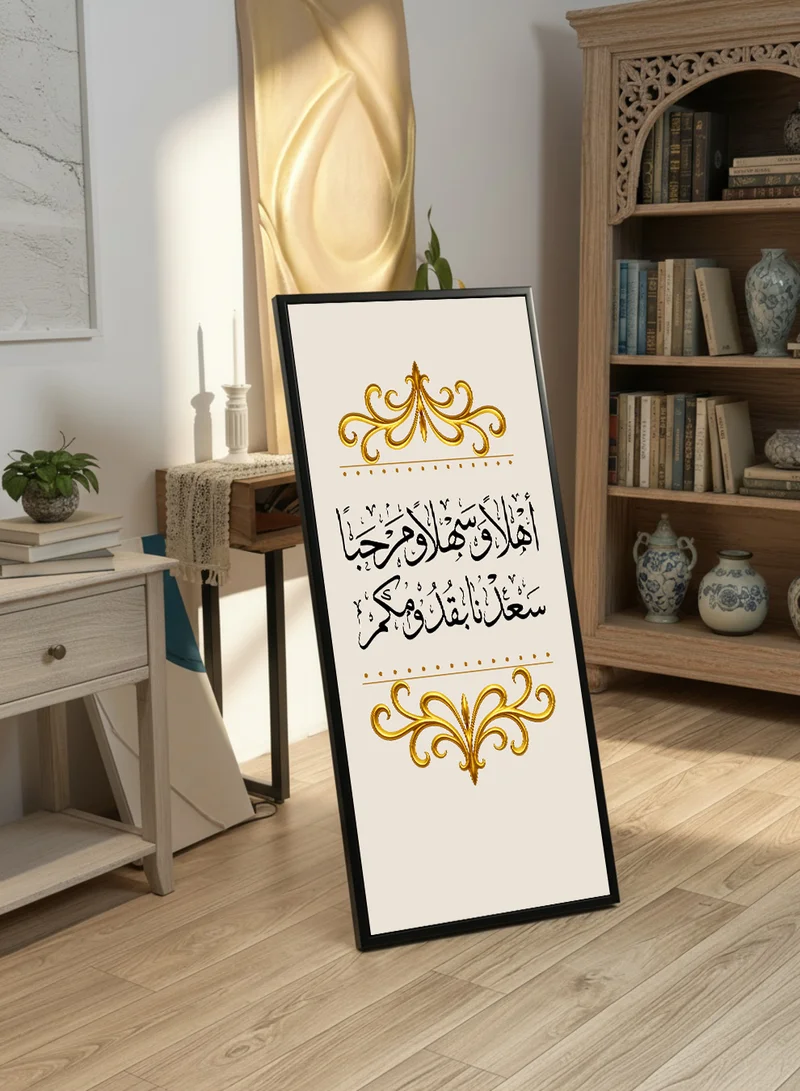 أهلاً وَسَهلاً ومَرحَباً
سَعدْنا بقُدُومكم